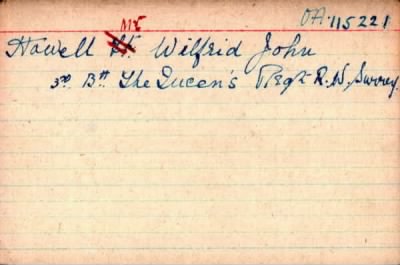 Mr OA 115221
Howell Lt. Wilfrid John
3rd Bn The Queen's Regt R. W. Surrey.